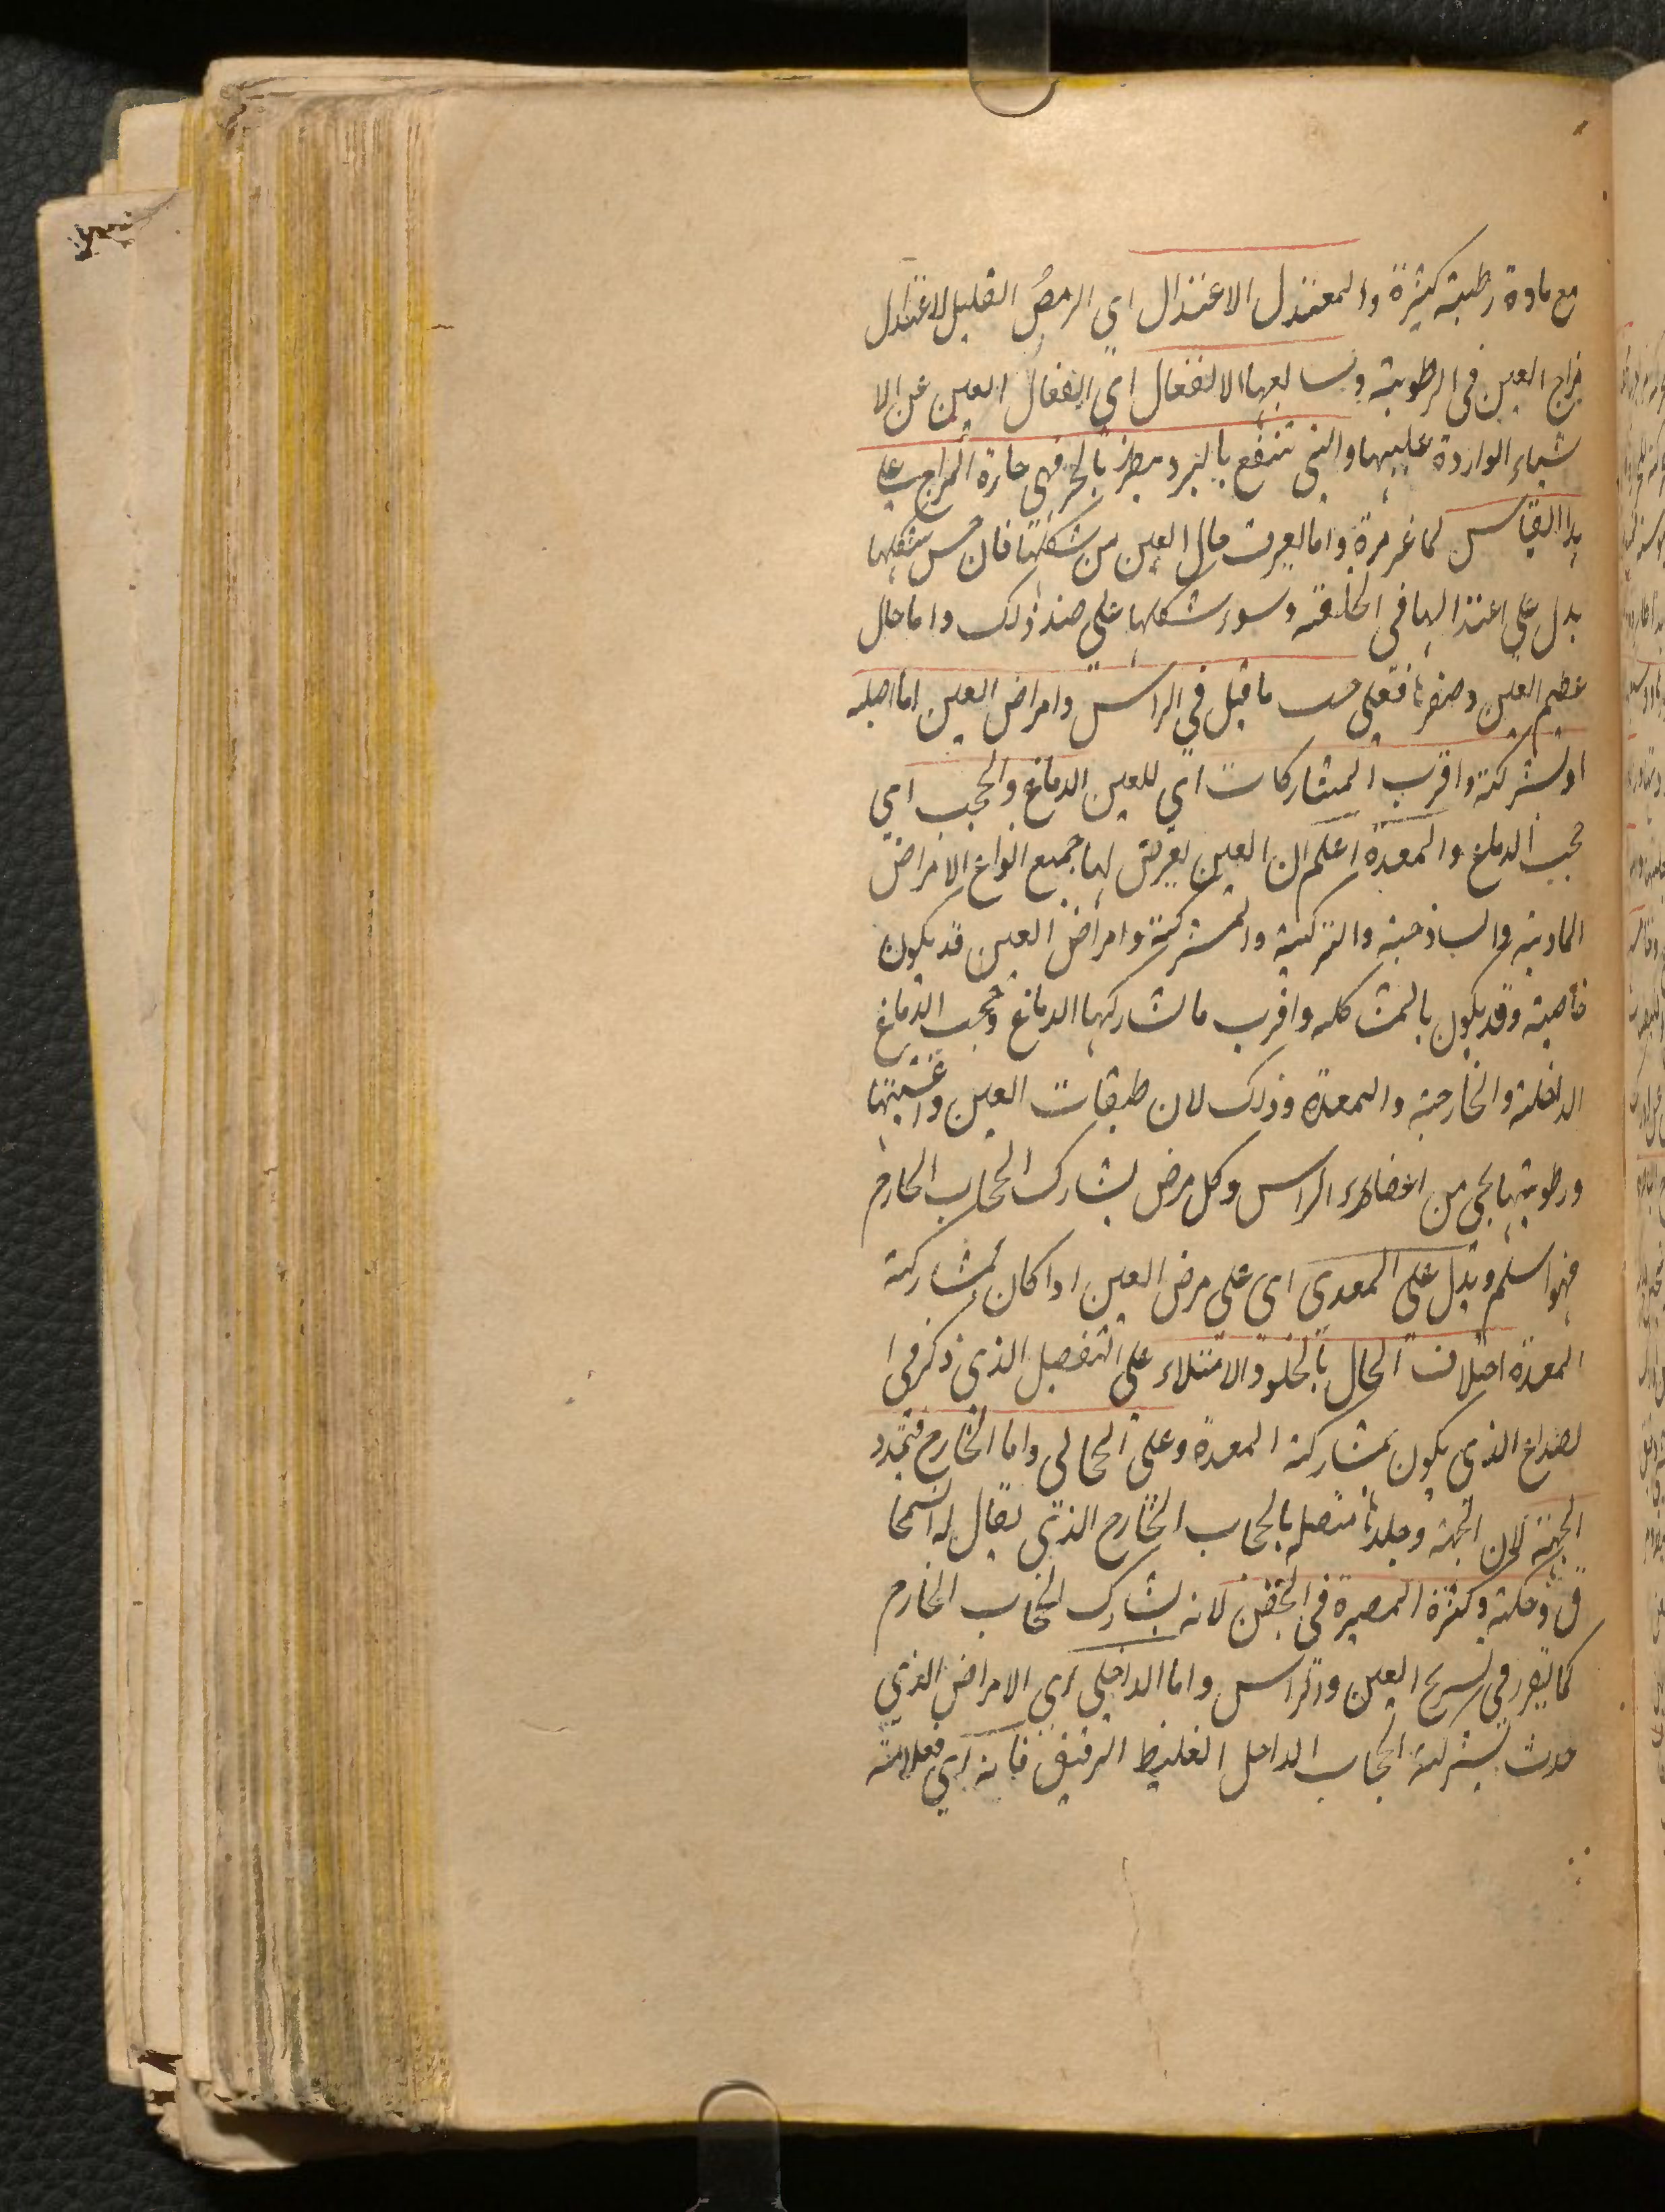 مع مادة رطبة كثيرة والمعتدل الاعتدال اي الرمص القليل لاعتدال
مزاج العين فى الرطوبة وسابعها الانفعال اي انفعال العين عن الا
شياء الواردة عليها والتى تنتفع بالبرد يضر بالحر فهى حارة المزاج على
هذا القياس كما غر مرة واما يعرف حال العين من شكلها فان حسن شكلها
يدل على اعتدالها فى الخلقة وسوء شكلها على ضد ذلك واما حال
عظم العين وصغرها فعلى حسب ما قيل في الراس وامراض العين اما اصلية
او بشركة واقرب المشاركات اي للعين الدماغ والحجب اى
حجب الدماغ والمعدة اعلم ان العين يعرض لها جميع انواع الامراض
المادية والساذجية والتركيبة والمشتركة وامراض العين قد يكون
خاصية وقد يكون بالمشاكلة واقرب ما تشاركها الدماغ وحجب الدماغ
الداخلة والخارجية والمعدة وذلك لان طبقات العين واغشيتها
ورطوبتها يجى من اعضاء الراس وكل مرض يشارك الحجاب الخارج
فهو اسلم ويدل على المعدى اى على مرض العين اذا كان لمشاركة
المعدة اختلاف الحال بالخلو والامتلاء على التفصيل الذي ذكر فى ا
لصداع الذى يكون بمشاركة المعدة وعلى الحجابى واما الخارج فتمدد
الجبهة لان الجبهة وجلدها متصلة بالحجاب الخارج الذي يقال له السمحا
ق وحكة وكثرة المصيرة في الجفن لانه يشارك الحجاب الخارج
كما تقرر في تشريح العين والراس واما الداخلى اى الامراض الذي
حدث بشركة الحجاب الداخل الغليظ الرقيق فانه اي فعلامته